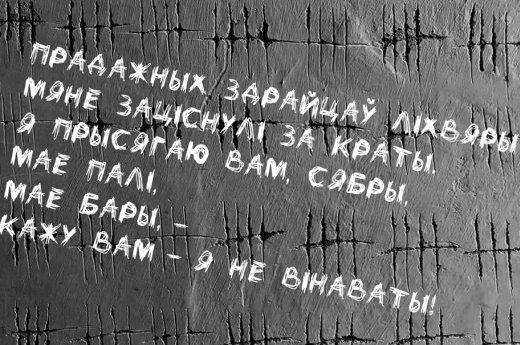 ПРАДАЖНЫХ ЗДРАЙЦАЎ ЛІХВЯРЫ
МЯНЕ ЗАЦІСНУЛІ ЗА КРАТЫ.
Я ПРЫСЯГАЮ ВАМ, СЯБРЫ,
МАЕ ПАЛІ,
МАЕ БАРЫ, –
КАЖУ ВАМ – Я НЕ ВІНАВАТЫ!